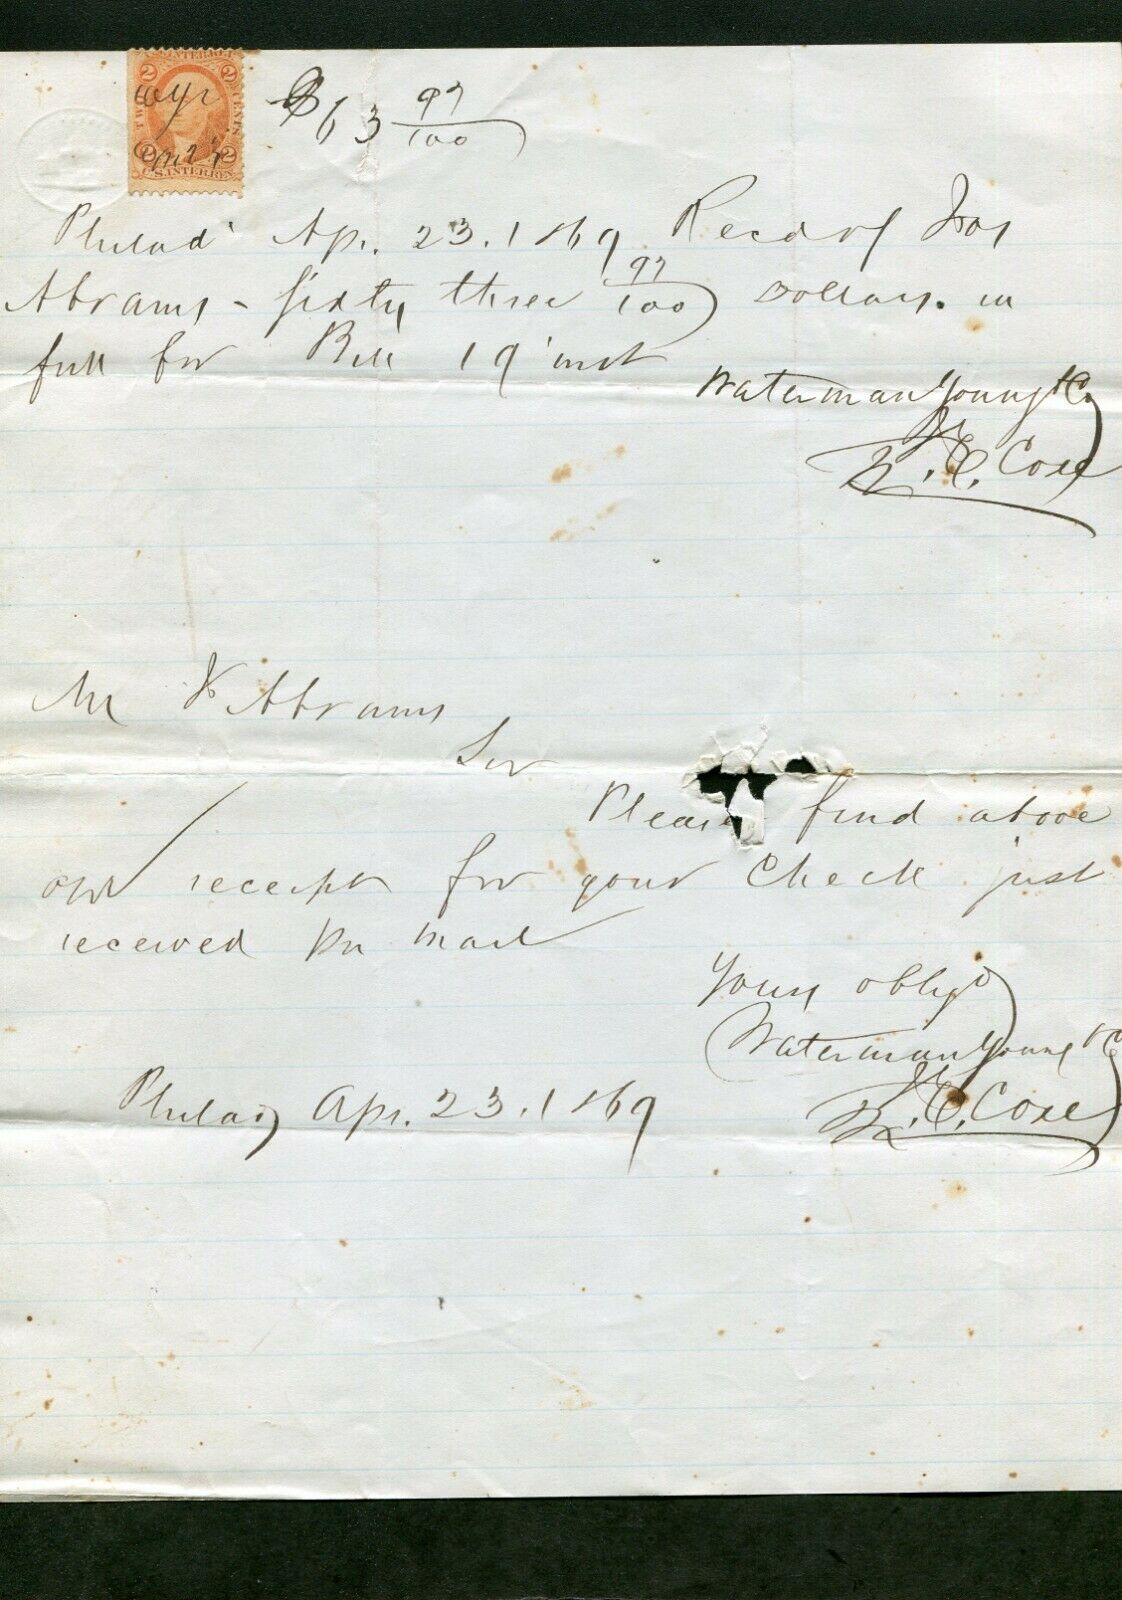 U.S. INTER. REV.
2 2
TWO CENTS
WYC
2 2
U.S. INTER. REV.
$63 97/100
Philad Apr. 23. 1869. Recd of
Abrams - Sixty three 97/100 Dollars. in
full for Bill 19 inst
Waterman Young & Co
C. Coxe
Mr Abrams
Sir
Please find above
our receipt for your Check just
received per mail
Yours oblig'd
Waterman Young & Co
C. Coxe
Philad Apr. 23. 1869